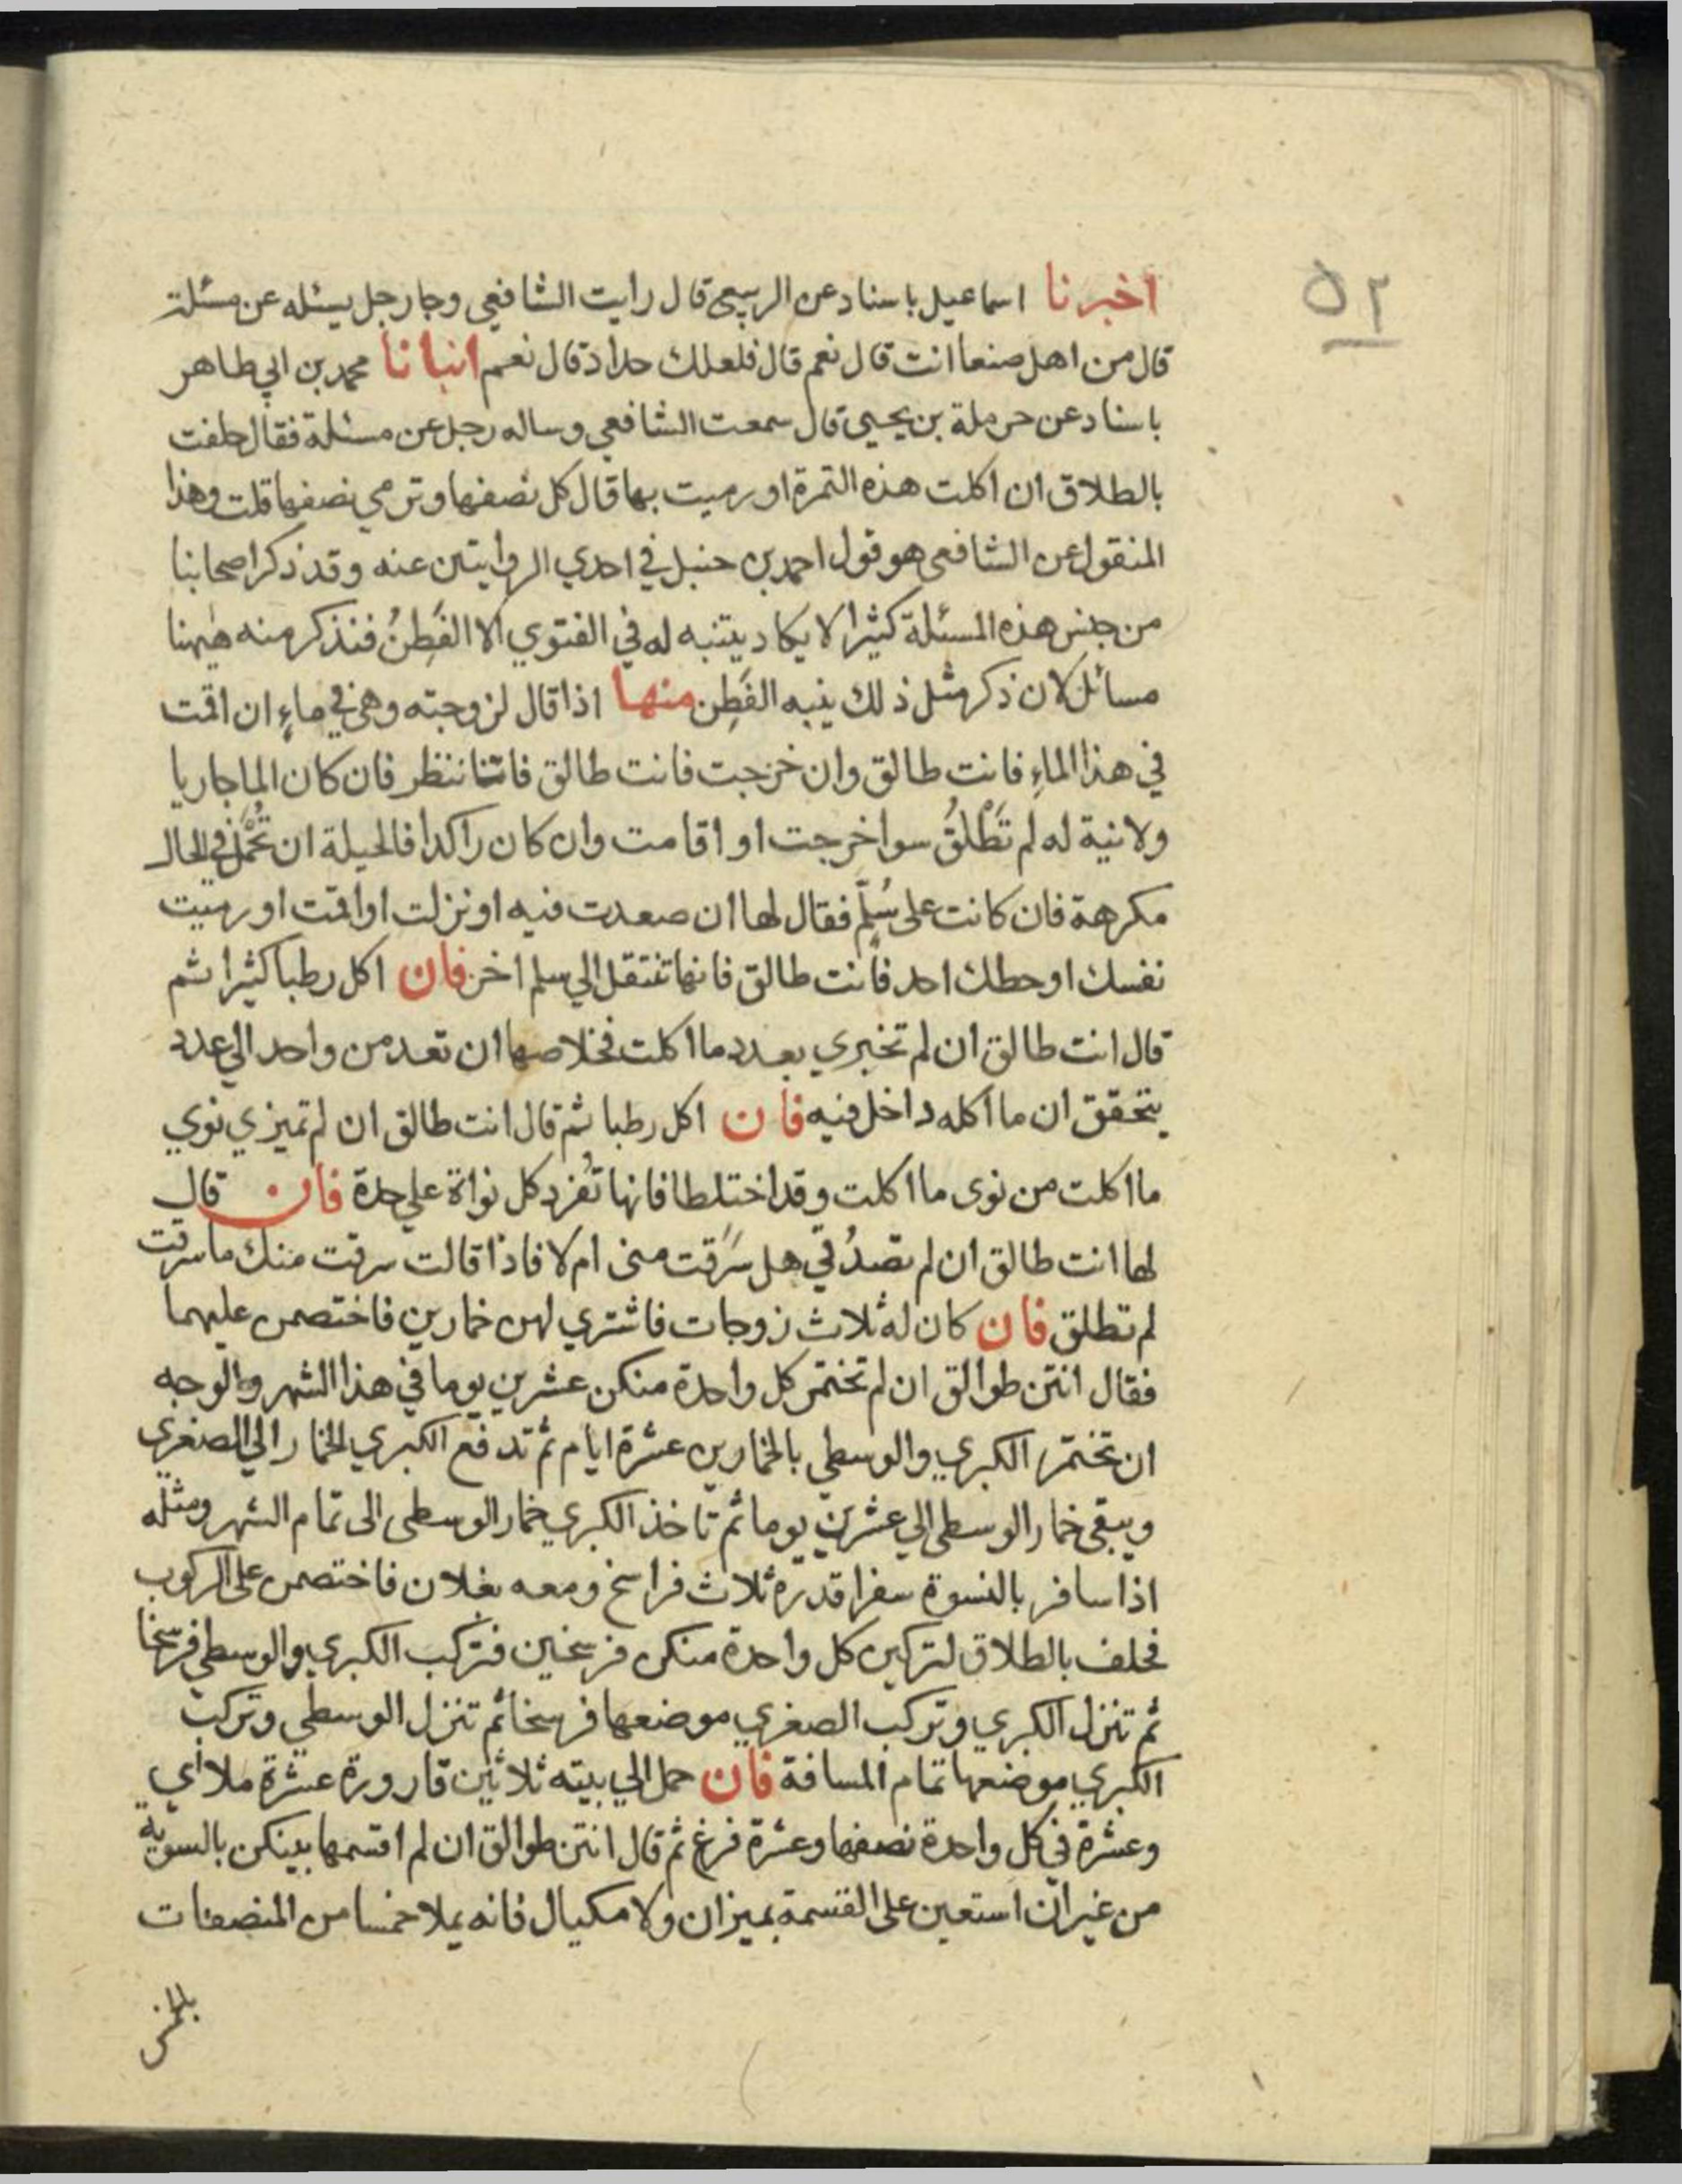 ٥٢
اخبرنا اسماعيل باسناد عن الربيع قال رايت الشافعي وجا رجل يسئله عن مسئلة
قال من اهل صنعا انت قال نعم قال فلعلك حداد قال نعم انبانا محمد بن ابي طاهر
باسناد عن حرملة بن يحيي قال سمعت الشافعي وساله رجل عن مسئلة فقال حلفت
بالطلاق ان اكلت هذه التمرة او رميت بها قال كل نصفها وترمي نصفها قلت وهذا
المنقول عن الشافعي هو قول احمد بن حنبل في احدي الروايتين عنه وقد ذكر اصحابنا
من جنس هذه المسئلة كثيرا لا يكاد يتنبه له في الفتوي الا الفَطِنُ فنذكر منه ههنا
مسائل لان ذكر مثل ذلك ينبه الفَطِن منها اذا قال لزوجته وهي في ماءٍ ان اقمت
في هذا الماءِ فانت طالق وان خرجت فانت طالق فاننا ننظر فان كان الما جاريا
ولا نية له لم تَطْلُقُ سوا خرجت او اقامت وان كان راكدا فالحيلة ان تُحْمَل في الحال
مكرهة فان كانت على سُلّم فقال لها ان صعدت فيه او نزلت او اقمت او رميت
نفسك او حطك احد فانت طالق فانها تنتقل الي سلم اخر فان اكل رطبا كثيرا ثم
قال انت طالق ان لم تخبري بعدد ما اكلت فخلاصها ان تعد من واحد الي عدد
يتحقق ان ما اكله داخل فيه فان اكل رطبا ثم قال انت طالق ان لم تميزي نوي
ما اكلت من نوى ما اكلت وقد اختلطا فانها تُفرد كل نواة علي حدة فان قال
لها انت طالق ان لم تصدُقي هل سَرَقت مني ام لا فاذا قالت سرقت منك ما سرقت
لم تطلق فان كان له ثلاث زوجات فاشتري لهن خمارين فاختصمن عليهما
فقال انتن طوالق ان لم تختمر كل واحدة منكن عشرين يوما في هذا الشهر والوجه
ان تختمر الكبري والوسطي بالخمارين عشرة ايام ثم تدفع الكبري الخمار الي الصغري
ويبقي خمار الوسطي الي عشرين يوما ثم تاخذ الكبري خمار الوسطى الى تمام الشهر ومثله
اذا سافر بالنسوة سفرا قدره ثلاث فراسخ ومعه بغلان فاختصمن على الركوب
فحلف بالطلاق لتركبن كل واحدة منكن فرسخين فتركب الكبري والوسطي فرسخا
ثم تنزل الكبري وتركب الصغري موضعها فرسخا ثم تنزل الوسطي وتركب
الكبري موضعها تمام المسافة فان حمل الي بيته ثلاثين قارورة عشرة ملاي
وعشرة في كل واحدة نصفها وعشرة فرغ ثم قال انتن طوالق ان لم اقسمها بينكن بالسوية
من غير ان استعين على القسمة بميزان ولا مكيال فانه يملا خمسا من المنصفات
بالخمس